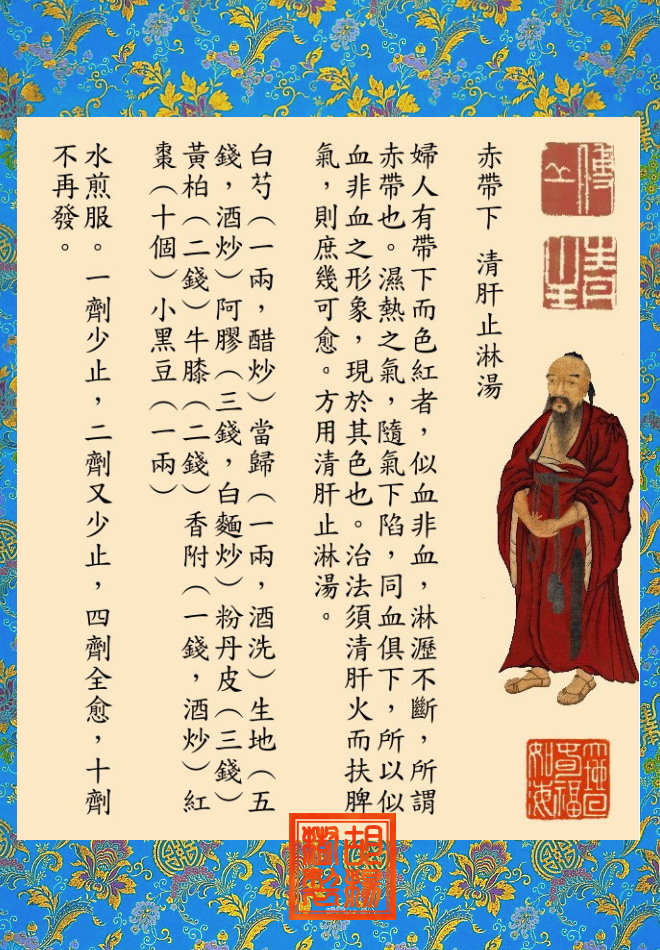 傅山
青主
赤帶下 清肝止淋湯
婦人有帶下而色紅者，似血非血，淋瀝不斷，所謂
赤帶也。濕熱之氣，隨氣下陷，同血俱下，所以似
血非血之形象，現於其色也。治法須清肝火而扶脾
氣，則庶幾可愈。方用清肝止淋湯。
白芍（一兩，醋炒）當歸（一兩，酒洗）生地（五
錢，酒炒）阿膠（三錢，白麵炒）粉丹皮（三錢）
黃柏（二錢）牛膝（二錢）香附（一錢，酒炒）紅
棗（十個）小黑豆（一兩）
水煎服。一劑少止，二劑又少止，四劑全愈，十劑
不再發。